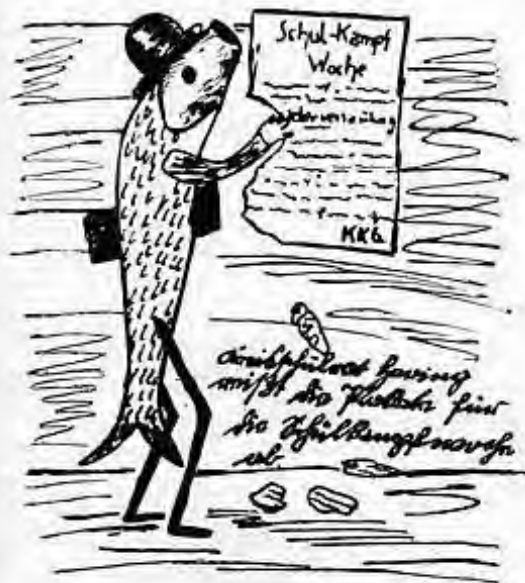 Schul-Kampf
Woche
Kreisschulrat Hering
reißt die Plakate für
die Schulkampfwoche
ab.